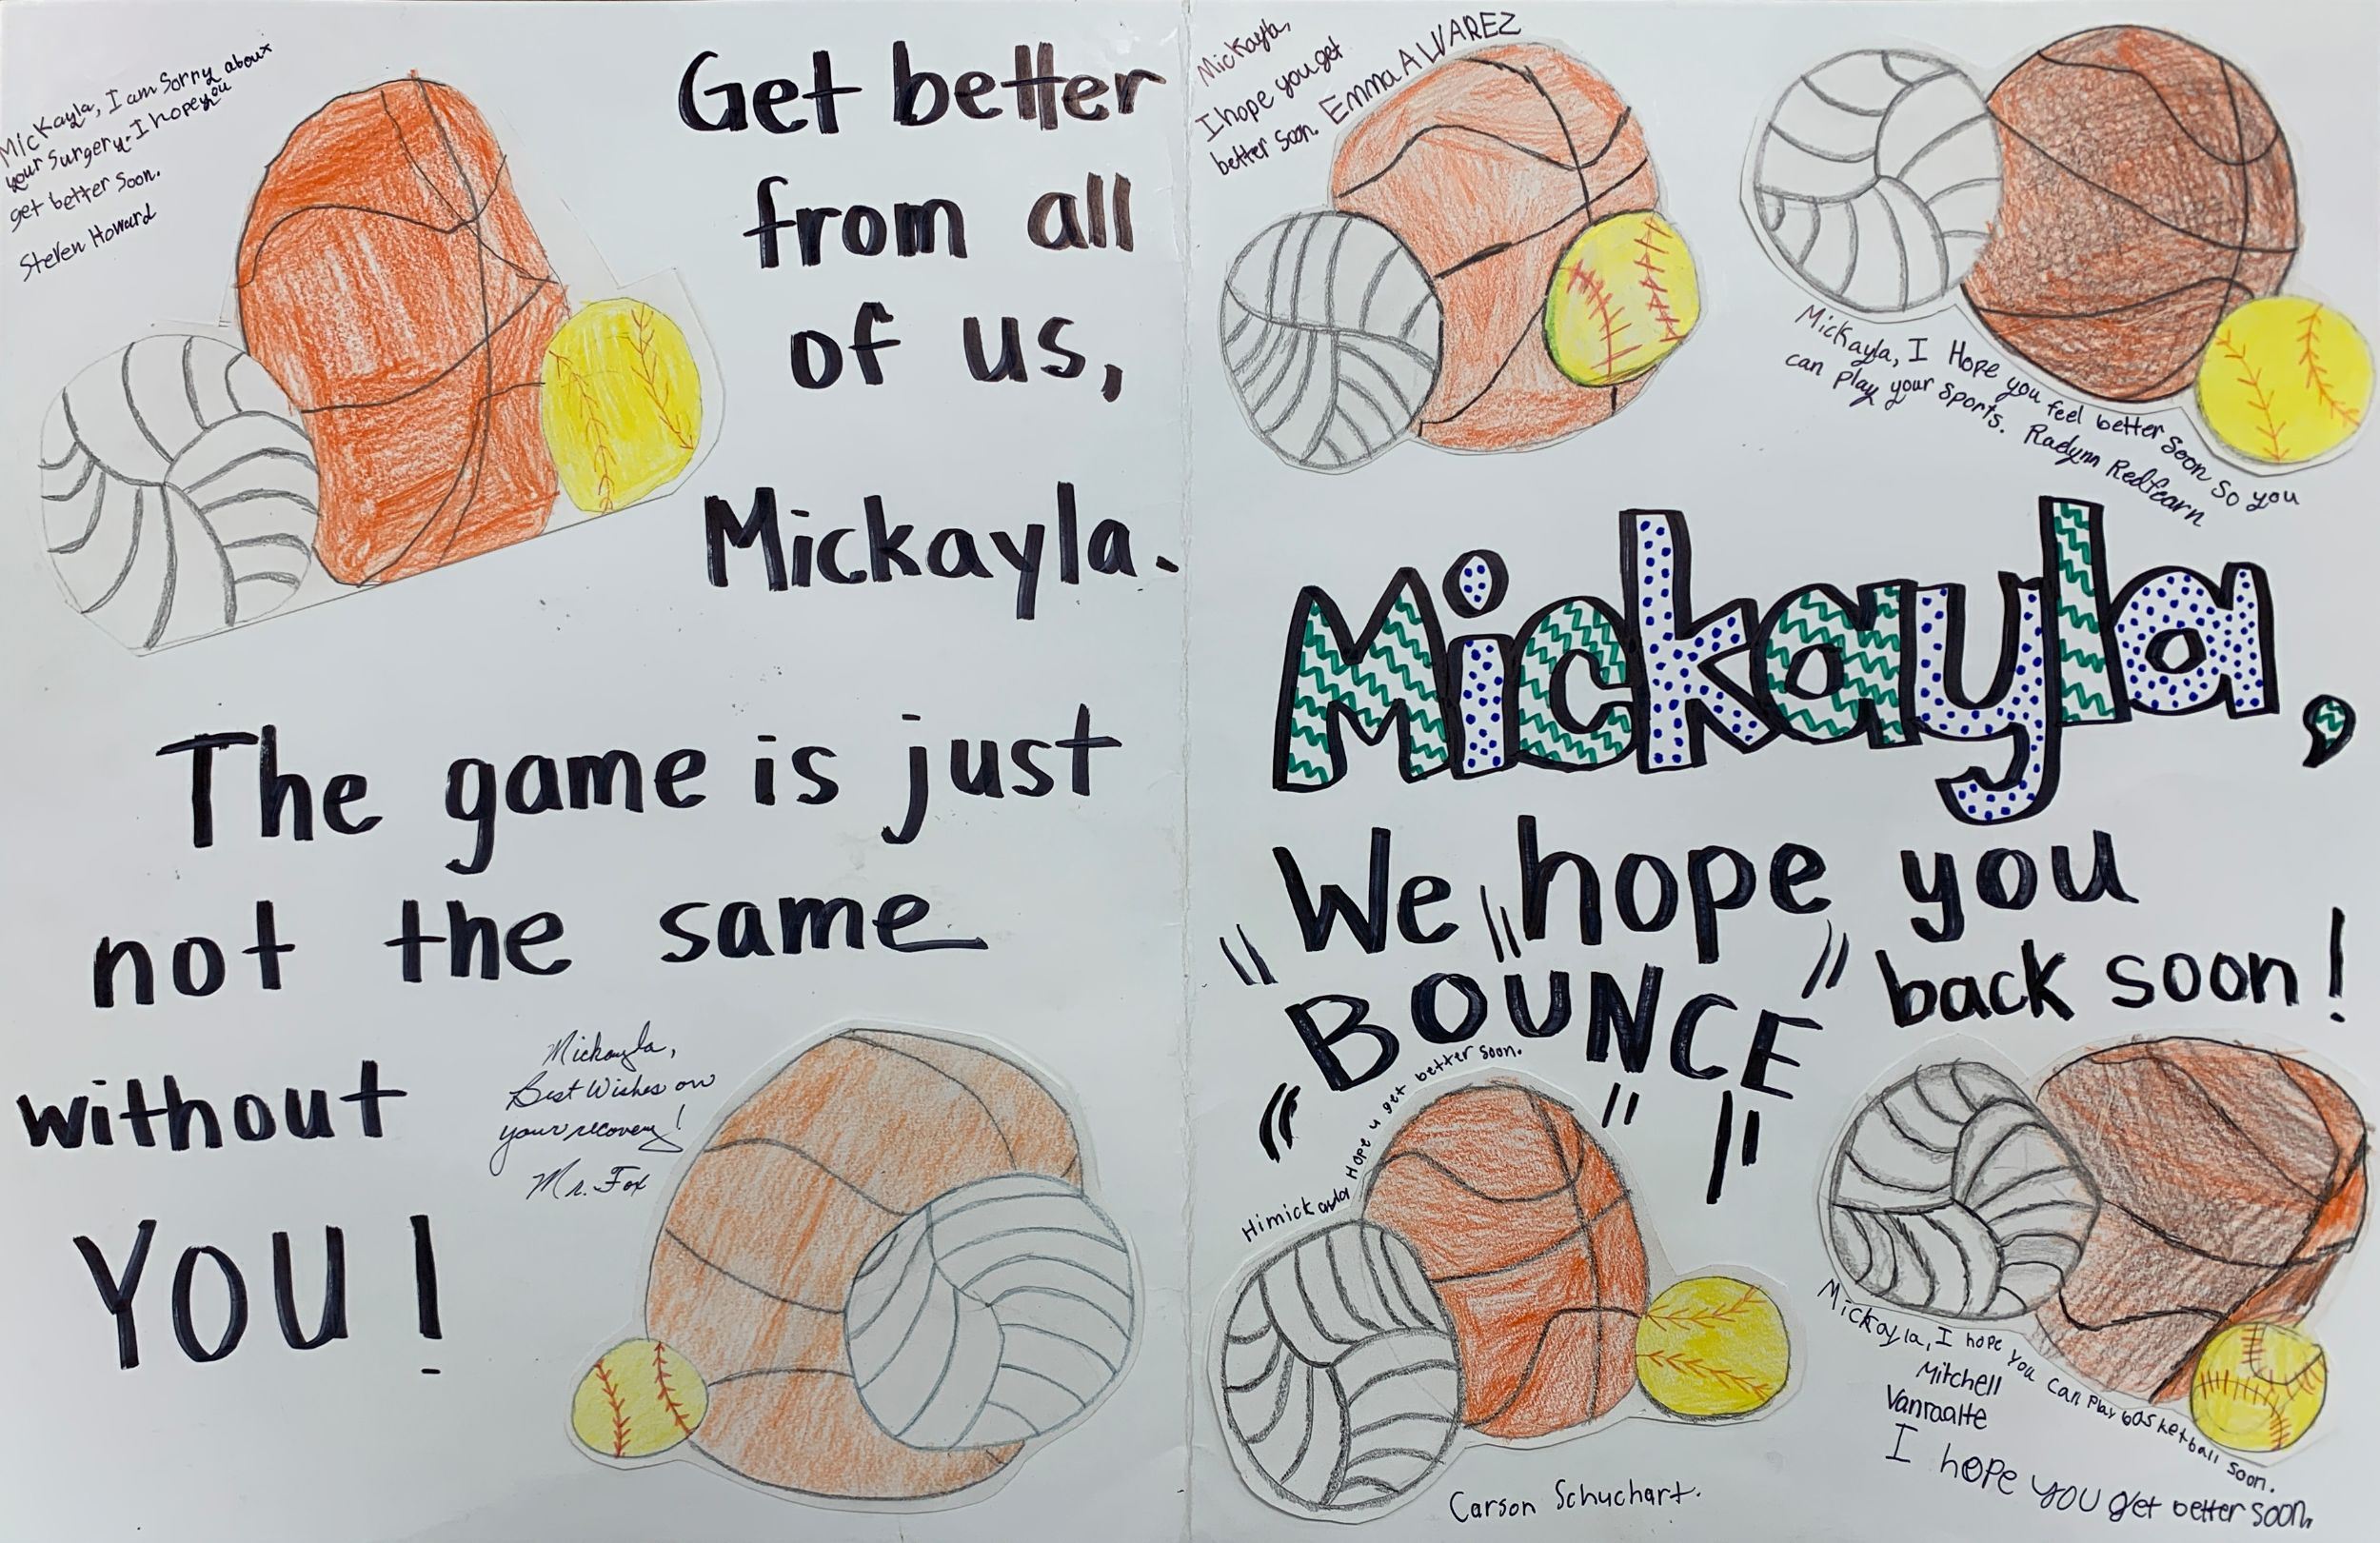 Mickayla, I am Sorry about
your Surgery. I hope you
get better soon.
Steven Howard
Get better
from all
of us,
Mickayla.
The game is just
not the same
without
YOU!
Mickayla,
Best Wishes on
your recovery!
Mr. Fox
Mickayla,
I hope you get
better soon. Emma ALVAREZ
Mickayla, I Hope you feel better soon so you
can play your sports. Radynn Redfearn
Mickayla,
We hope you
BOUNCE back soon!
Hi mickayla Hope u get better soon.
Carson Schuchart.
Mickayla, I hope you can play basketball soon.
Mitchell
Vanraalte
I hope you get better soon.